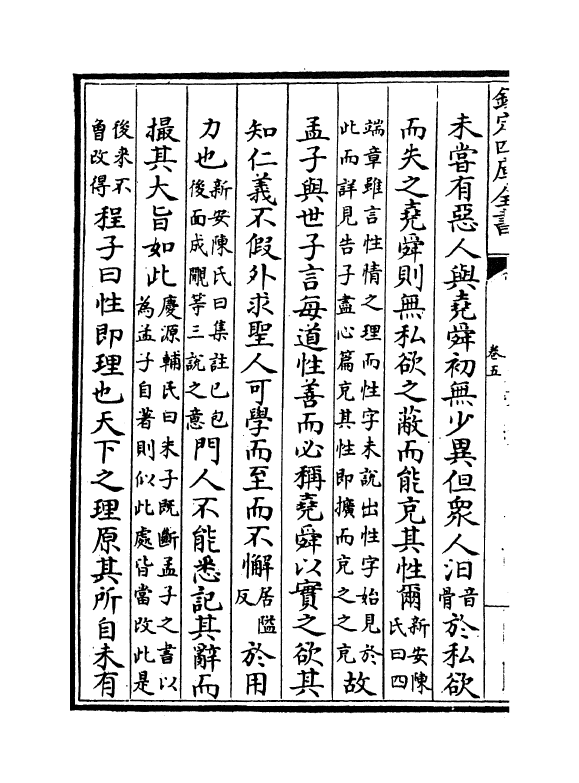 欽定四庫全書
卷五
未嘗有惡人與堯舜初無少異但衆人汩音骨於私欲
而失之堯舜則無私欲之蔽而能充其性爾新安陳氏曰四
端章雖言性情之理而性字未說出性字始見於此而詳見告子盡心篇充其性即擴而充之之充故
孟子與世子言每道性善而必稱堯舜以實之欲其
知仁義不假外求聖人可學而至而不懈居隘反於用
力也新安陳氏曰集註已包後面成覸等三說之意門人不能悉記其辭而
撮其大旨如此慶源輔氏曰朱子既斷孟子之書以為孟子自著則似此處皆當改此是
後來不曾改得程子曰性即理也天下之理原其所自未有